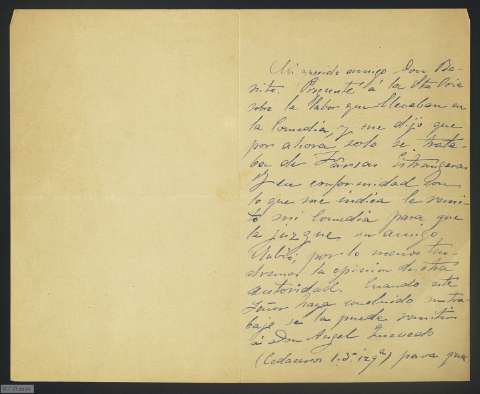 Mi querido amigo Don Be-
nito: Pregunté á la Sta
sobre la labor que llevaban en
la Comedia, y me dijo que
por ahora, solo se trata-
ba de Extrangeras
Y en conformidad con
lo que me indica le remi-
to mi Comedia para que
la juzgue su amigo
por lo menos ten-
dremos la opinion de otra
autoridad. Cuando este
Señor haya concluido su tra-
bajo se la puede remitir
á Don Angel Quevedo
(Cedaceros 1. 3º izqª) para que